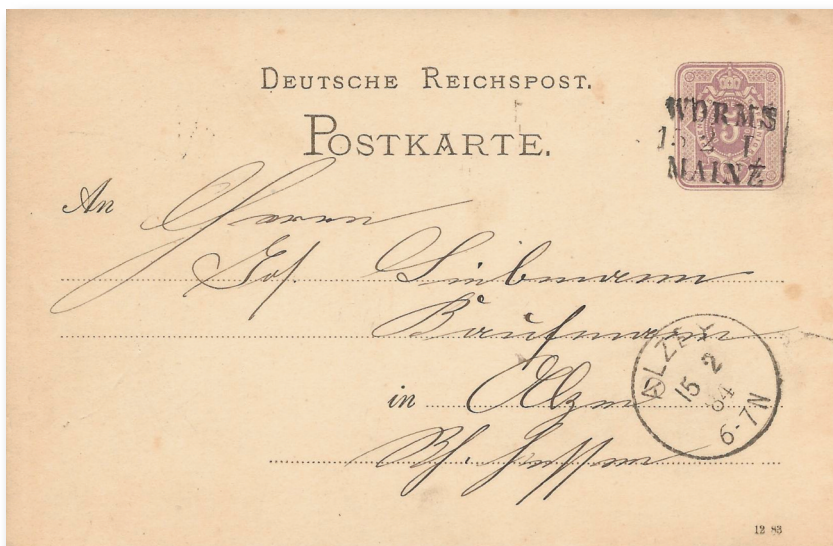 DEUTSCHE REICHSPOST.
POSTKARTE.
WORMS
15 2 I
MAINZ
5
An Herrn
Jos. Liebmann
Kaufmann
in Alzey
Rh. Hessen
ALZEY
15 2
84
6-7N
12 83